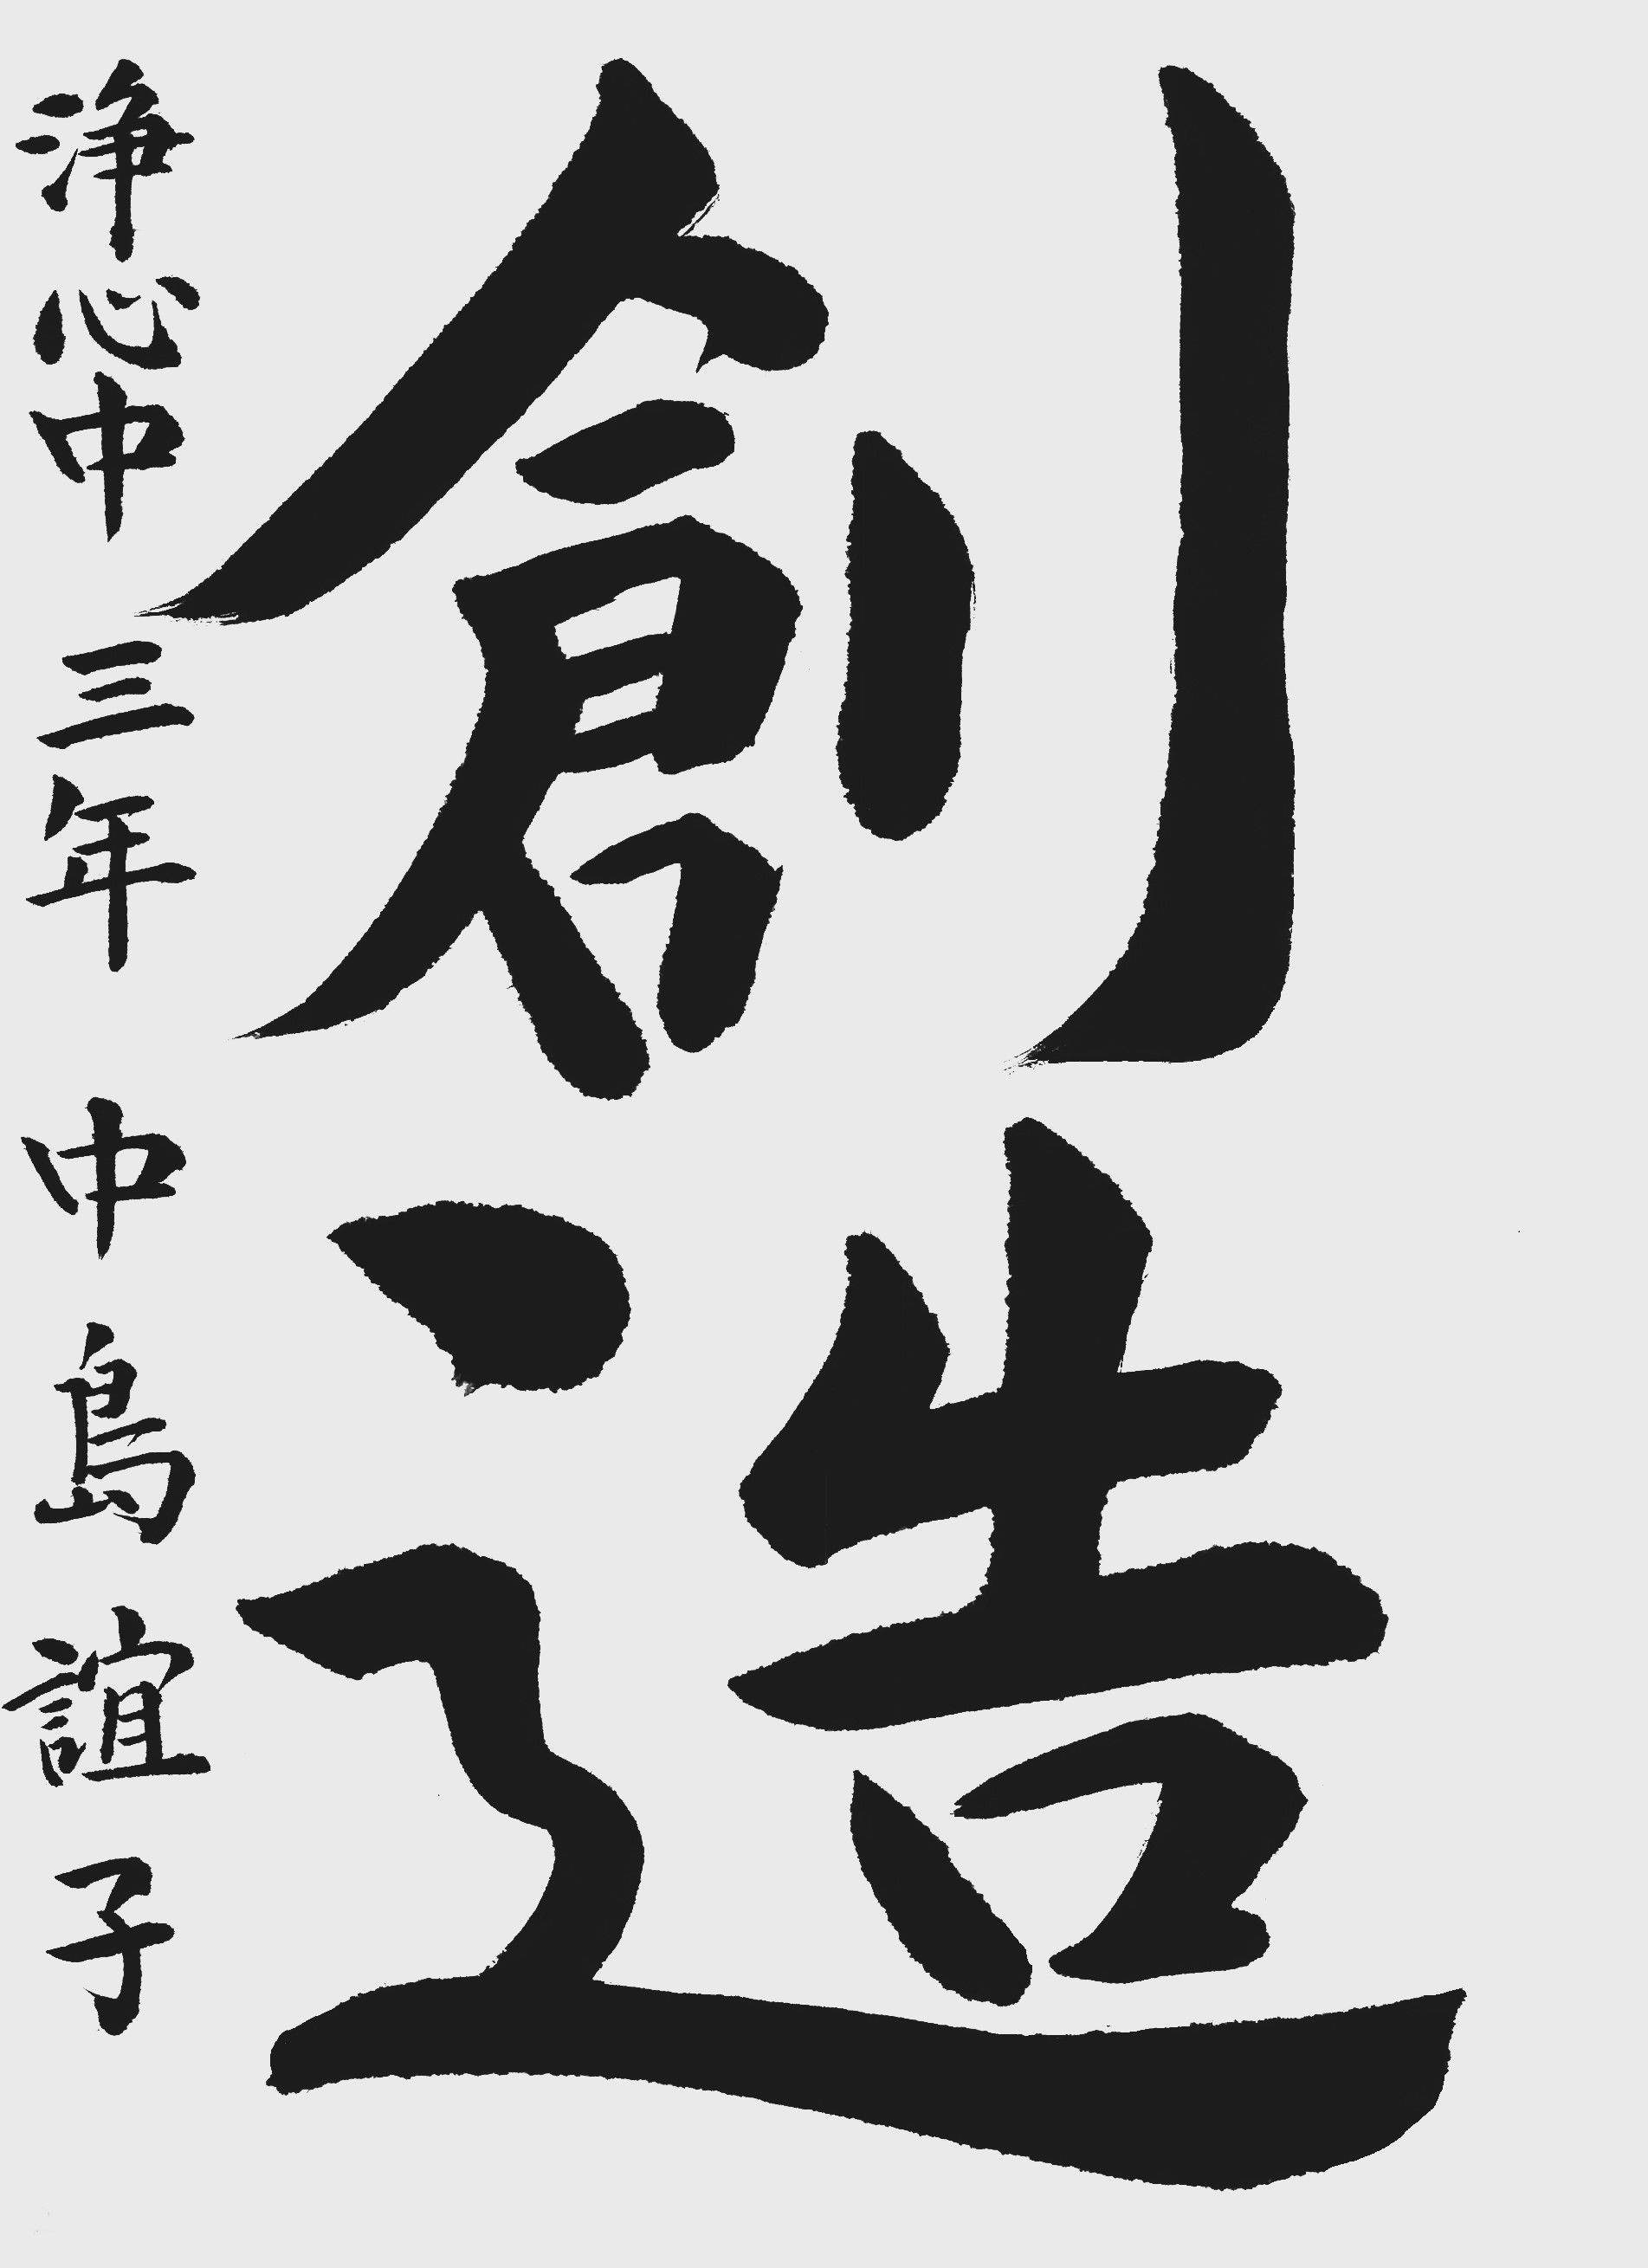 創造
浄心中 三年 中島誼子